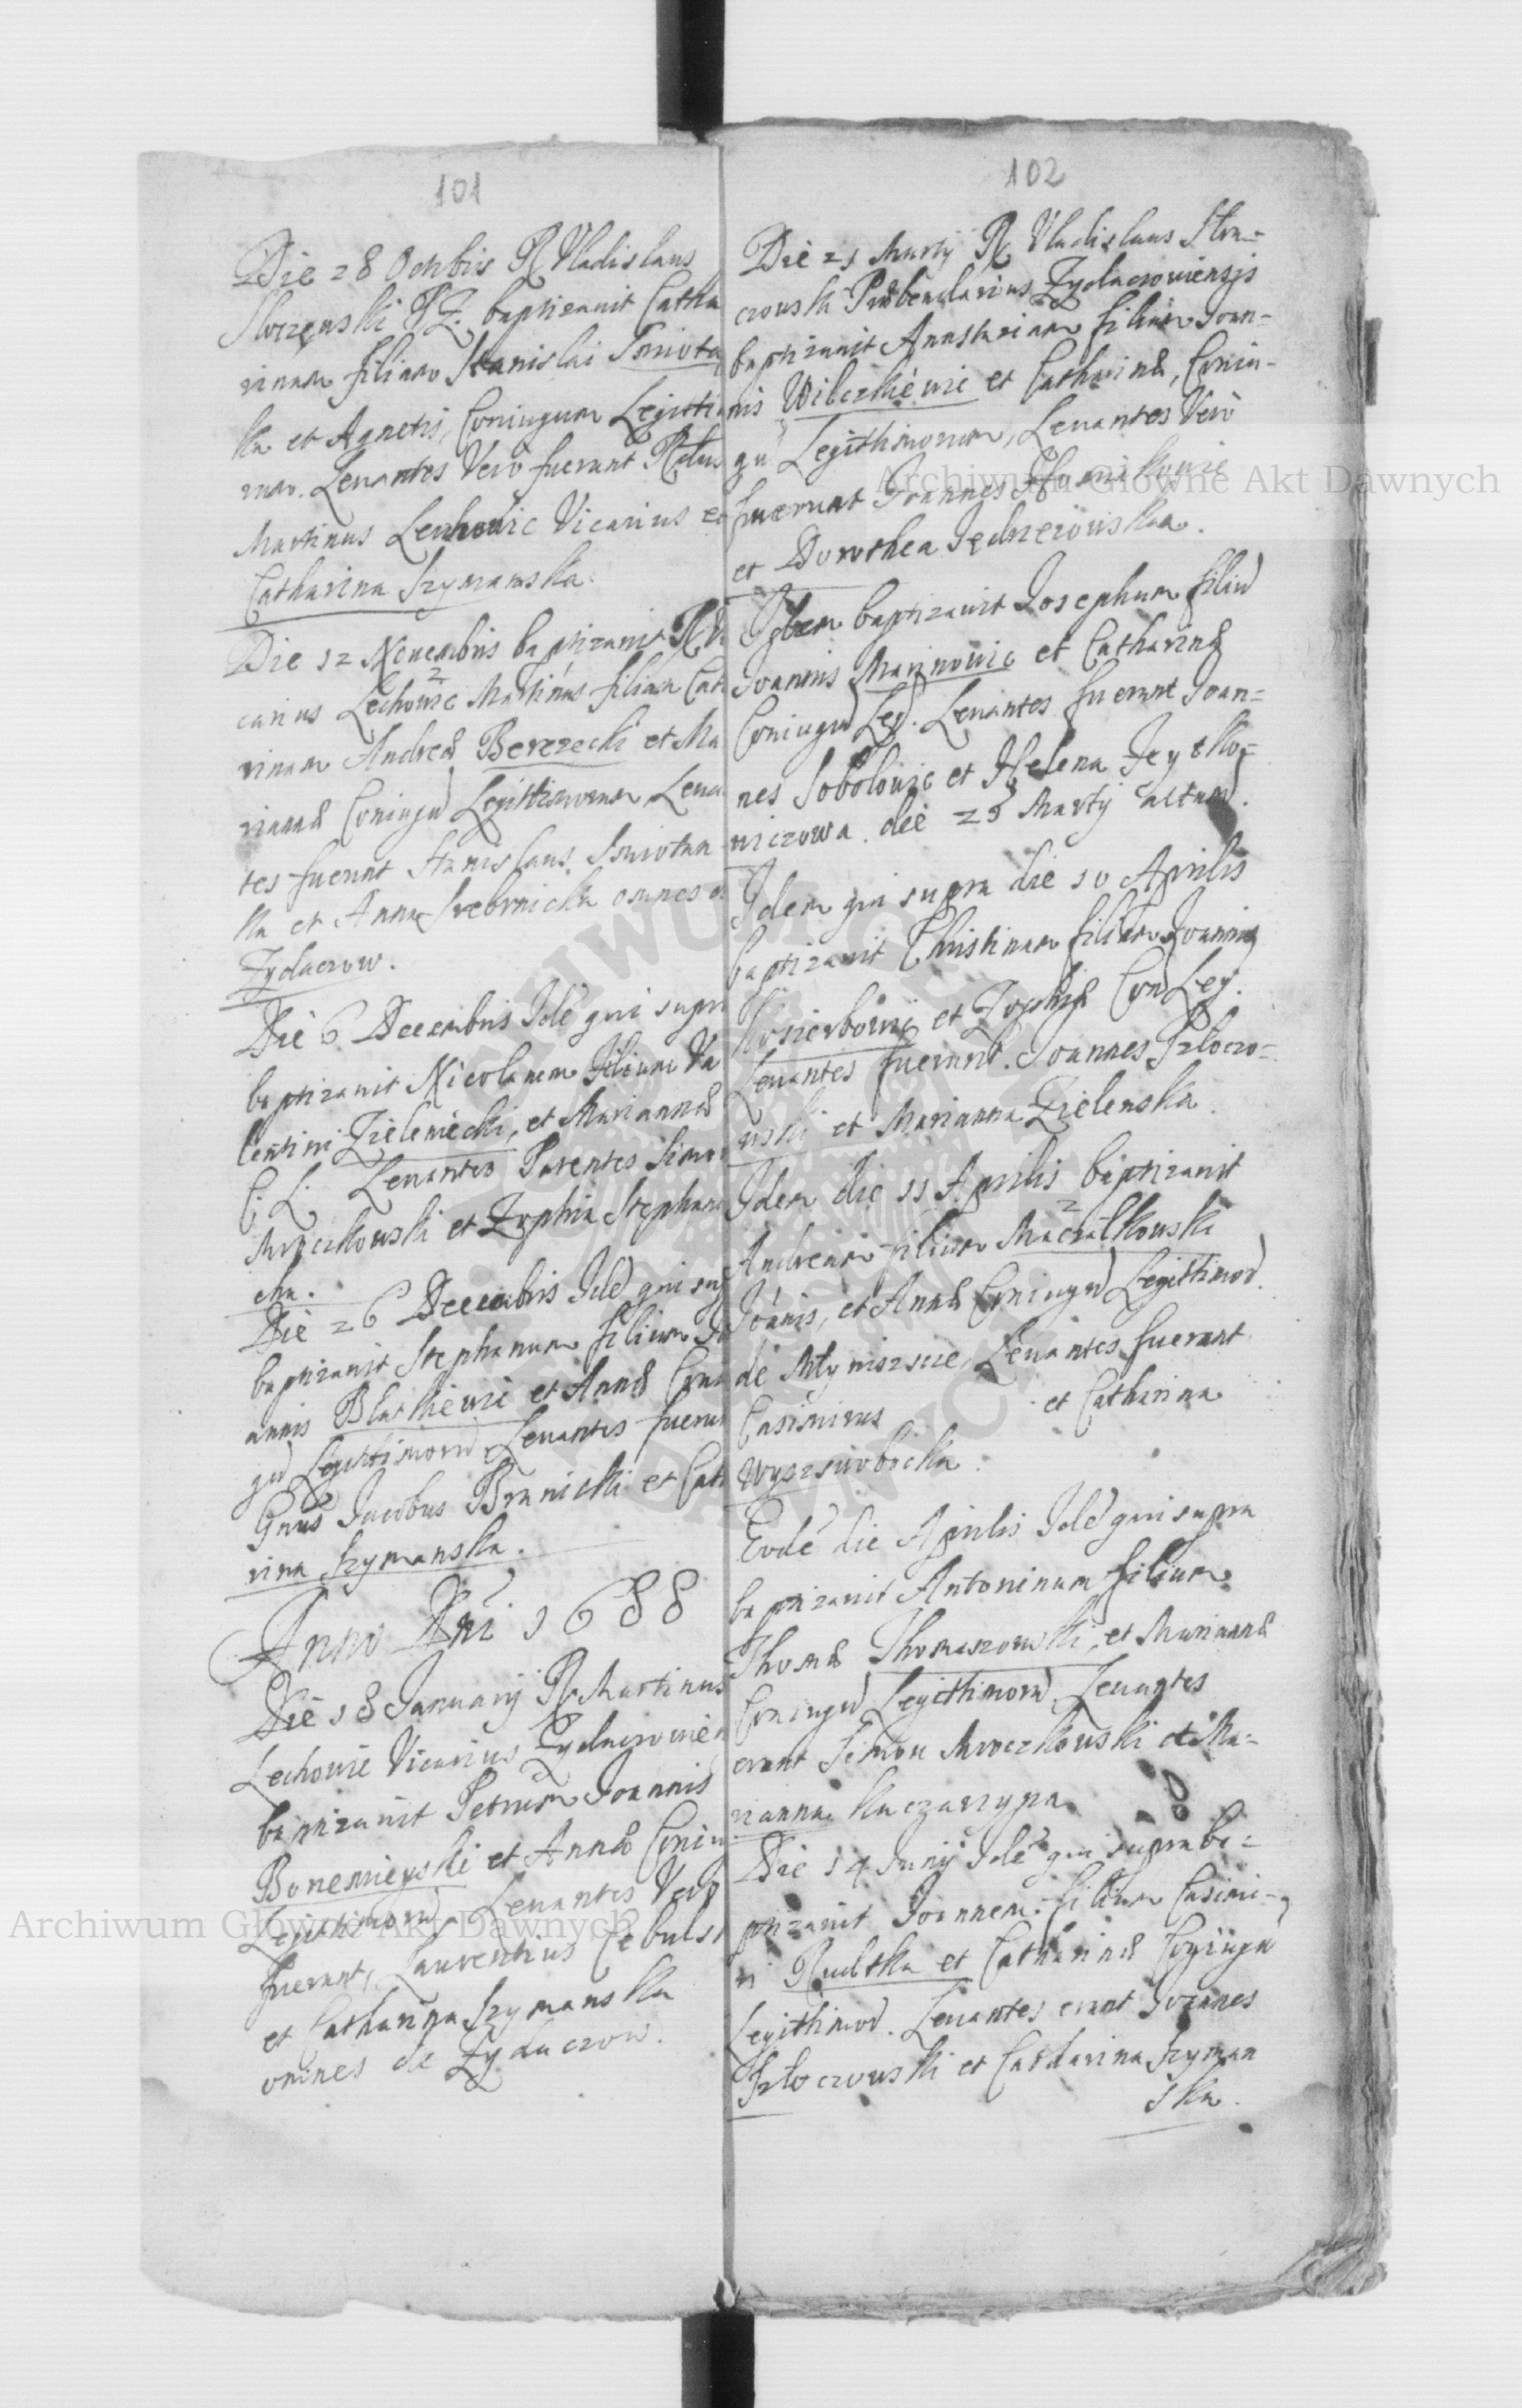 101
Die 28 Octobris R Vladislaus
Stoczewski P.Z. baptizauit Catha
rinam filiam Stanislai Smiota
ka et Agnetis, Coniugum Legitti
mor. Leuantes Vero fuerunt Rdus
Martinus Lechowic Vicarius et
Catharina Szymanska.
Die 12 Nouembris baptizauit R Vi
carius Lechowic Martinus filiam Cat
rinam Andreæ Berezecki et Ma
riannæ Coniugu Legittimorum, Leua
tes fuerunt Stanislaus Smiotan
ka et Anna Srebrnicka omnes
Zydaczow.
Die 6 Decembris Ide qui supr
baptizauit Nicolaum filium Va
lentini Zieleniecki, et Mariannæ
C. L. Leuantes Patentes Simo
Mroczkowski et Zophia Stephan
cka.
Die 26 Decembris Ide qui su
baptizauit Stephanum filium Jo
annis Blaskiewic et Annæ Coni
gu Legittimoru Leuantes fuerun
Gnus Jacobus Branicki et Cat
rina Szymanska.
Anno Dni 1688
Die 18 January R Martinus
Lechowic Vicarius Zydaczowien
baptizauit Petrum Joannis
Bonemieyski et Annæ Coniu
Legittimoru. Leuantes Vero
fuerunt, Laurentius Cebuls
et Catharina Szymanska
omnes de Zydaczow.
102
Die 21 Martij R Vladislaus Sto-
czowski Præbendarius Zydaczowiensis
baptizauit Anastaziam filiam Joan-
nis Wilczkiewic et Catharinæ, Coniu-
gu Legitthimorum, Leuantes Vero
fuerunt Joannes
et Dorothea Jędrzeiowska.
Idem baptizauit Josephum filiu
Joannis Marinowic et Catharinæ
Coniugu Leg. Leuantes fuerunt Joan-
nes Sobolowic et Helena Jeysko-
wiczowa. die 25 Martij actum.
Idem qui supra die 10 Aprilis
baptizauit Christinam filiam Joannis
Kosierbowic et Zophiæ Con Leg.
Leuantes fuerunt. Joannes Szloczo-
wski et Marianna Zielenska.
Idem die 11 Aprilis baptizauit
Andream filium Maczalkowski
Joanis, et Annæ Coniugu Legittimor.
de Młyniszcze, Leuantes fuerunt
Casimirus et Catharina
Wyszswobocka.
Eode die Aprilis Ide qui supra
baptizauit Antoninum filium
Thomæ Thomaszowski, et Mariannæ
Coniugu Legitthimoru Leuantes
erant Simon Mroczkowski et Ma-
rianna Kaczarzypa
Die 14 Junij Ide qui supra ba-
ptizauit Joannem filium Casimi-
ri Rudtka et Catharinæ Coniugu
Legitthimor. Leuantes erant Joannes
Szloczowski et Catharina Szyman
ska.
Archiwum Główne Akt Dawnych
Archiwum Główne Akt Dawnych